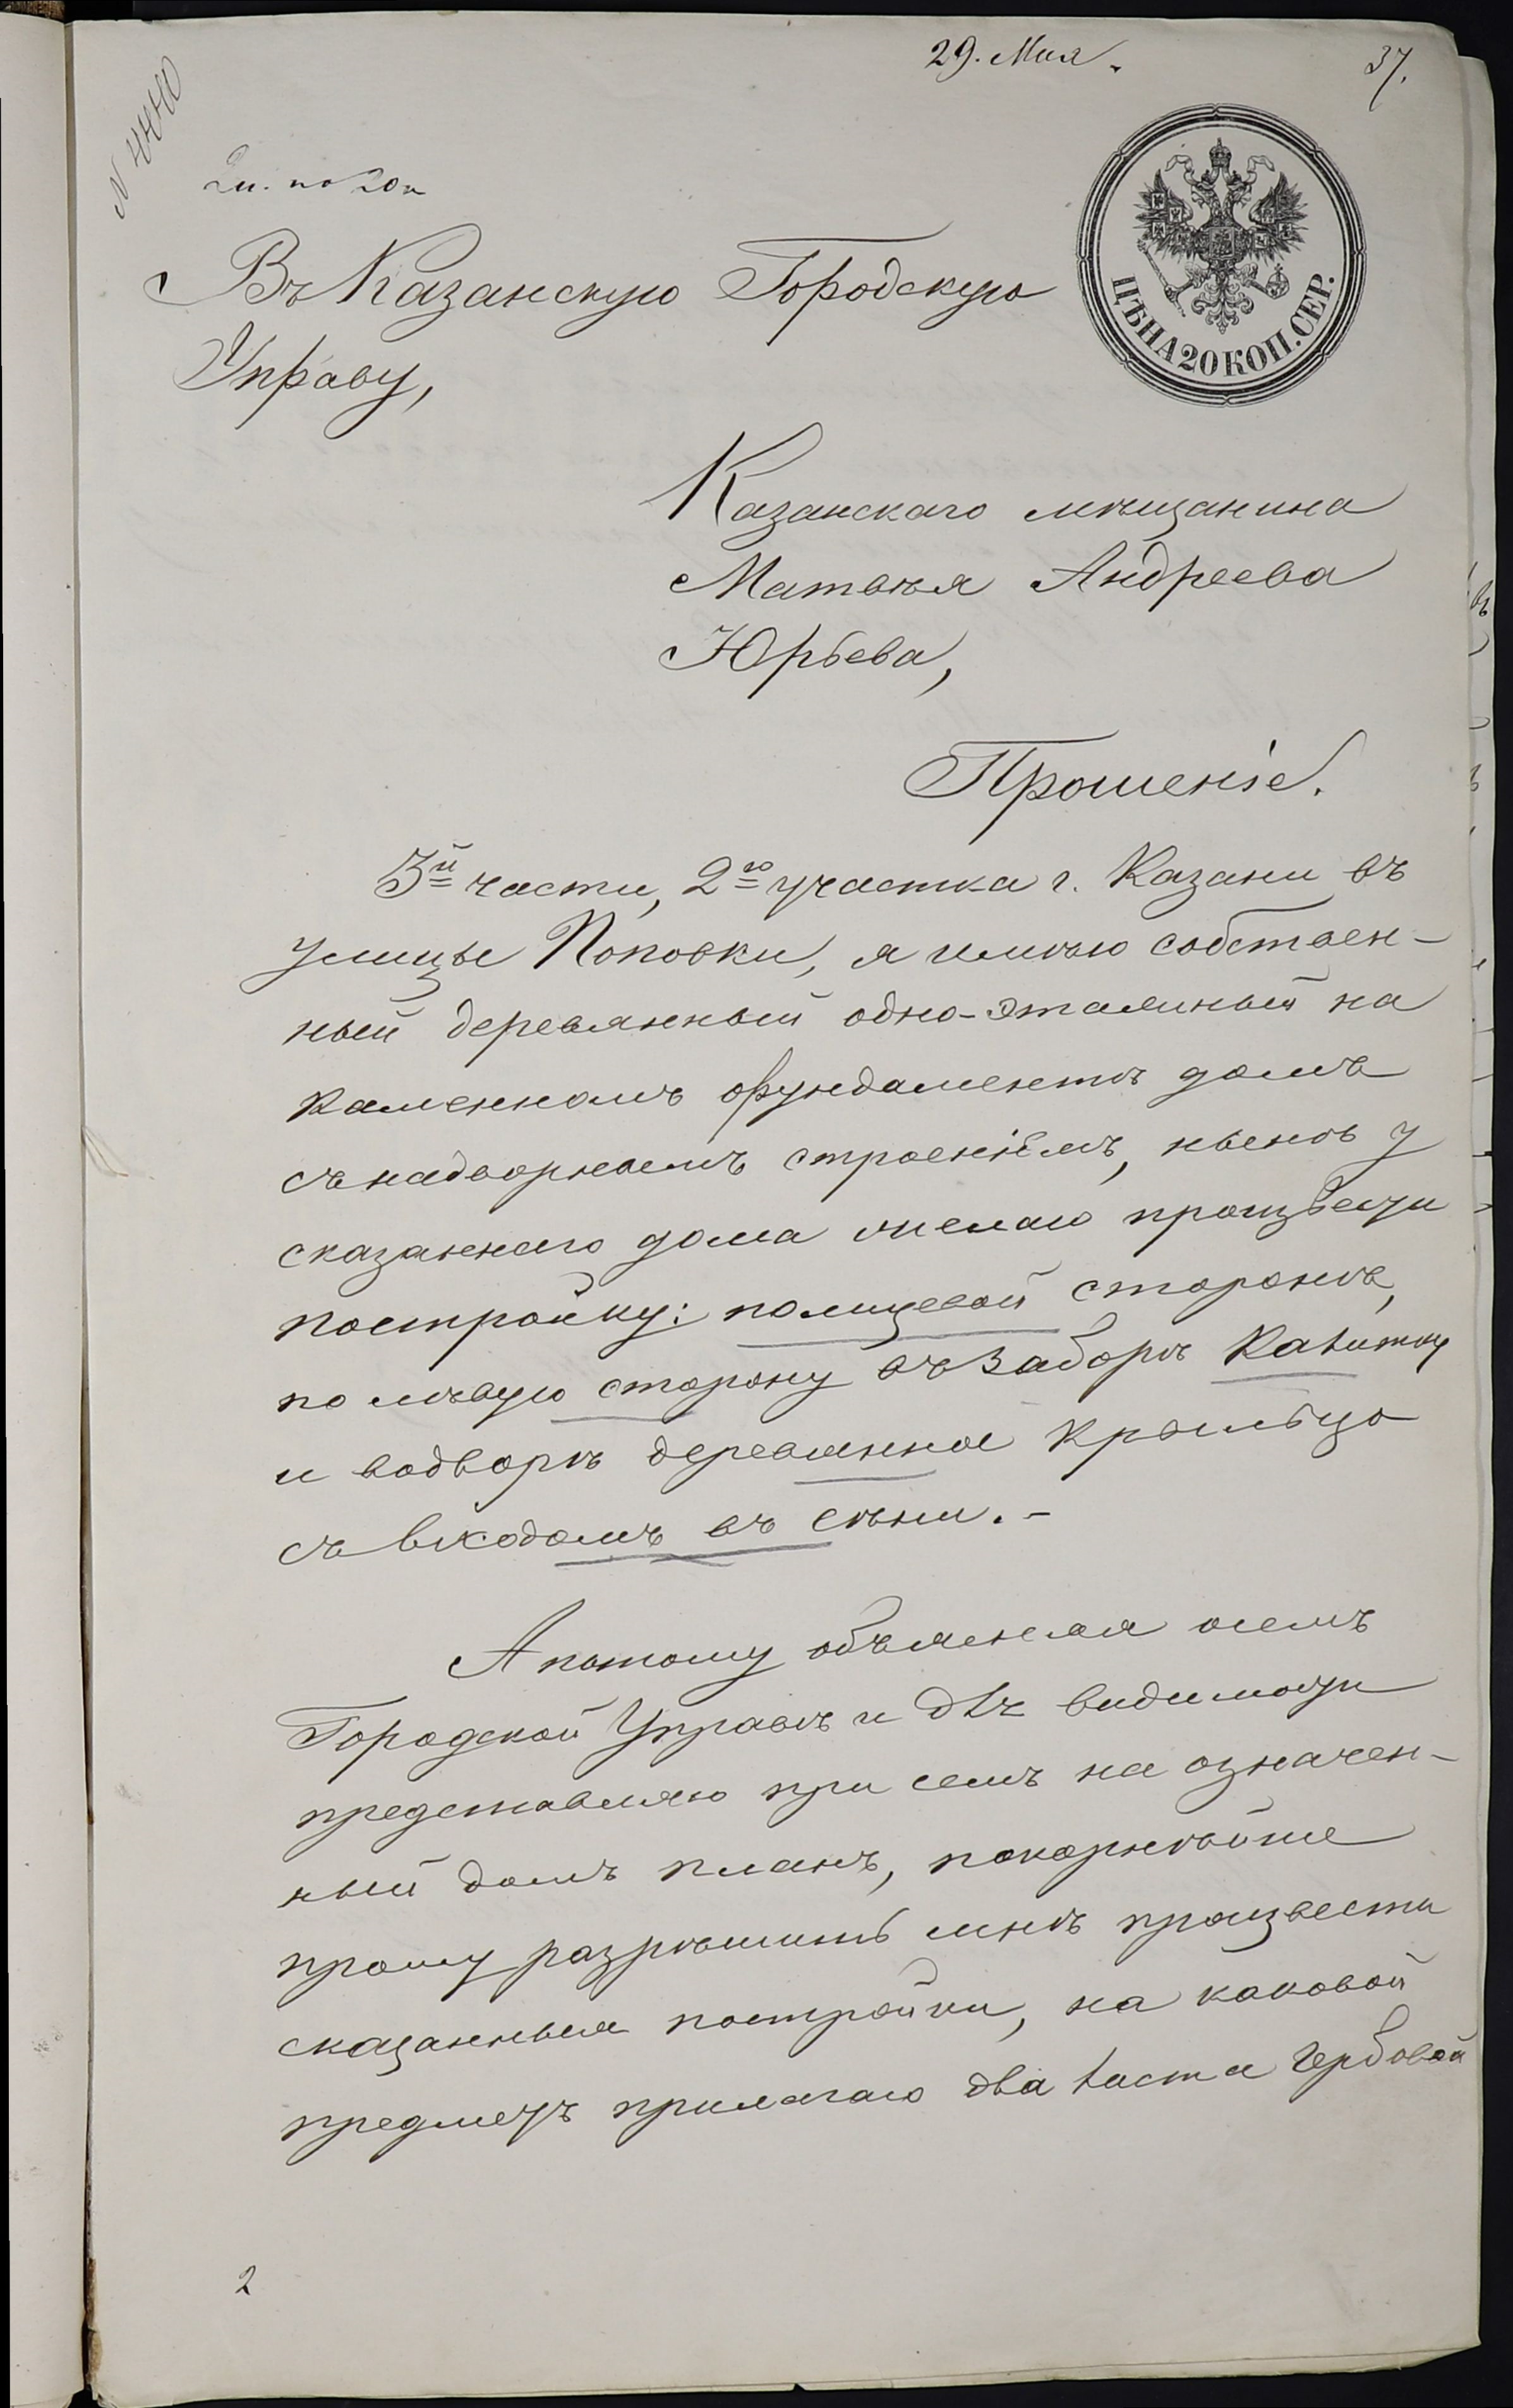 29. Мая.
37.
N 4440
2 л. по 20 к
ЦѢНА 20 КОП. СЕР.
Въ Казанскую Городскую
Управу,
Казанскаго мѣщанина
Матвѣя Андреева
Юрьева,
Прошеніе.
3й части, 2го участка г. Казани въ
улицы Поповки, я имѣю собствен-
ный деревянный одно-этажный на
каменномъ фундаментѣ домъ
съ надворнымъ строеніемъ, нынѣ у
сказаннаго дома желаю произвести
постройку: полицевой сторонѣ,
по лѣвую сторону въ заборѣ Калитку
и водворѣ деревянное крыльцо
съ входомъ въ сѣни.-
А потому объясняя о семъ
Городской Управѣ и для видимости
представляю при семъ на означен-
ный домъ планъ, покорнѣйше
прошу разрѣшить мнѣ произвести
сказанныя постройки, на каковой
предметъ прилагаю два листа Гербовой
2